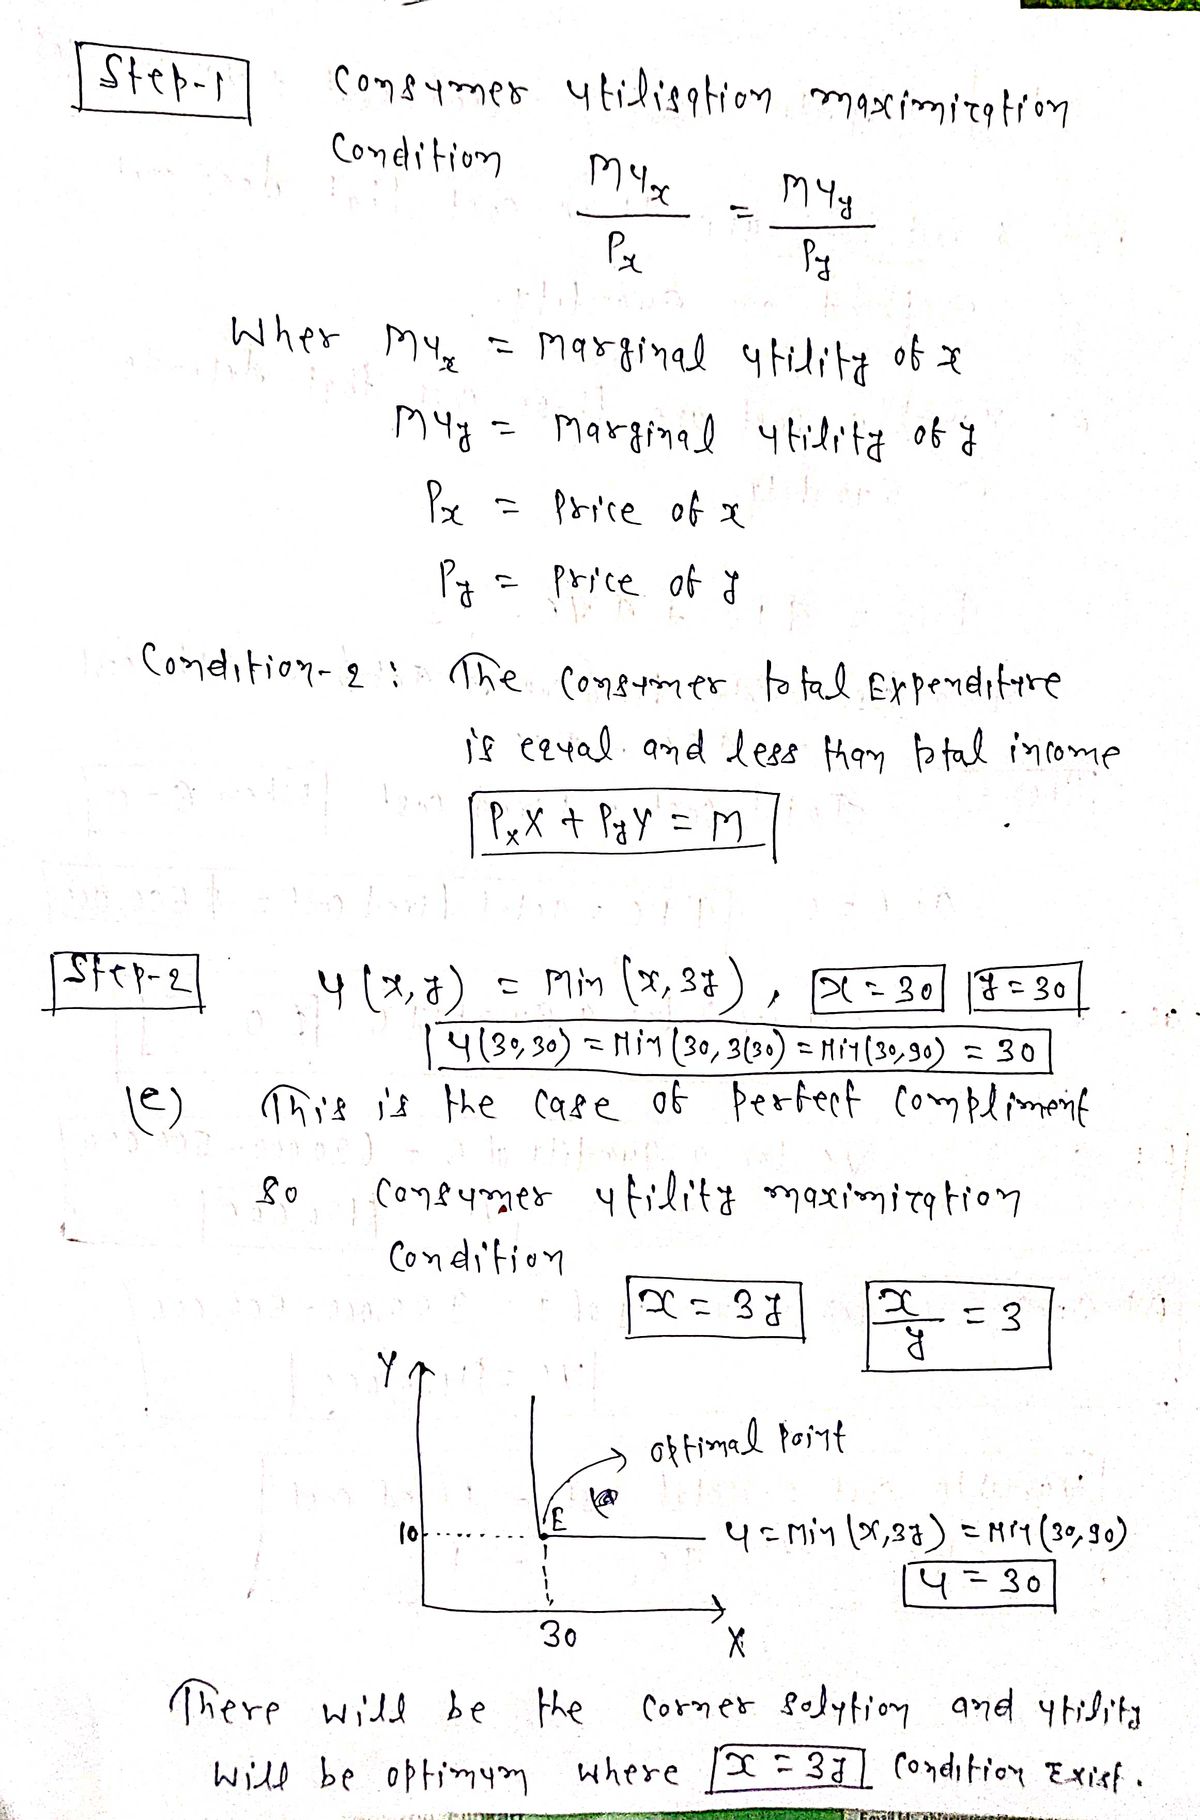 Step-1
Consumer utilisation maximization
Condition MUx / Px = MUy / Py
Wher MUx = Marginal utility of x
MUy = Marginal utility of y
Px = Price of x
Py = Price of y
Condition-2 : The Consumer total Expenditure
is equal and less than total income
PxX + PyY = M
Step-2 U(x,y) = Min (x,3y), x=30 y=30
U(30,30) = Min (30, 3(30) = Min(30,90) = 30
(e) This is the case of perfect compliment
so Consumer utility maximization
Condition
x = 3y x/y = 3
Y
optimal point
E
10
U = Min (x,3y) = Min (30,90)
U = 30
30
X
There will be the corner solution and utility
will be optimum where x = 3y condition Exist.